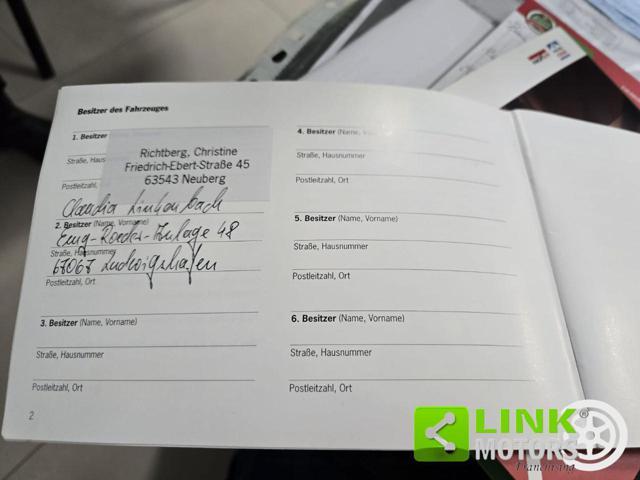 Besitzer des Fahrzeuges
1. Besitzer
Richtberg, Christine
Friedrich-Ebert-Straße 45
63543 Neuberg
Straße, Haus
Postleitzahl,
Claudia
2. Besitzer (Name, Vorname)
48
Straße, Hausnummer
67067 Ludwigshafen
Postleitzahl, Ort
3. Besitzer (Name, Vorname)
Straße, Hausnummer
Postleitzahl, Ort
2
4. Besitzer (Name, Vorname)
Straße, Hausnummer
Postleitzahl, Ort
5. Besitzer (Name, Vorname)
Straße, Hausnummer
Postleitzahl, Ort
6. Besitzer (Name, Vorname)
Straße, Hausnummer
Postleitzahl, Ort
LINK
MOTORS
Franchising